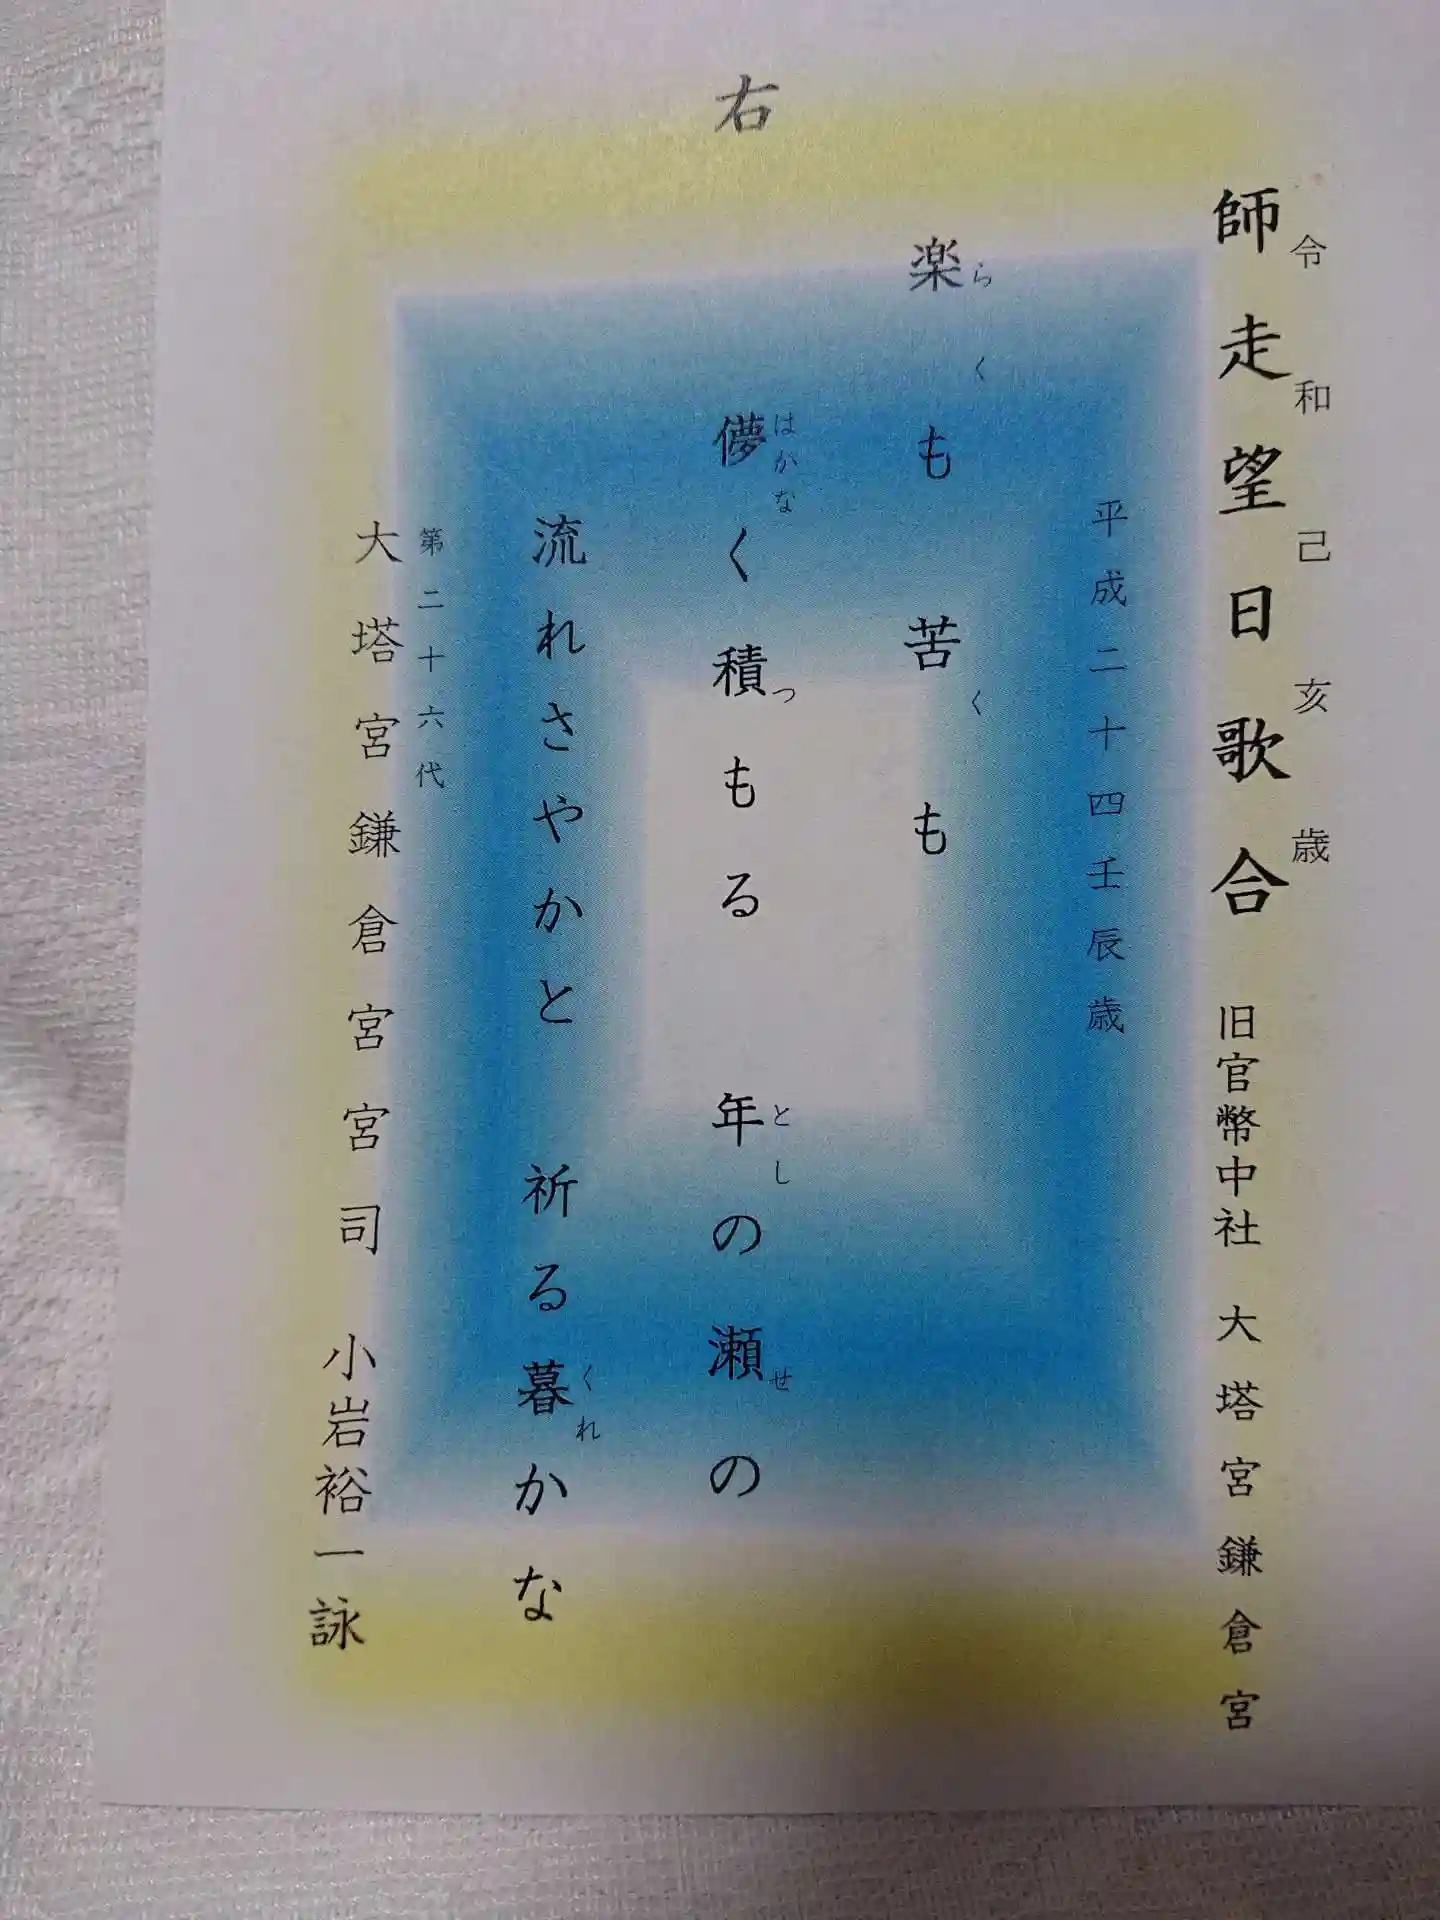 右
令和己亥歳
師走望日歌合 旧官幣中社 大塔宮鎌倉宮
平成二十四壬辰歳
らく く
楽も苦も
はかな つ とし せ
儚く積もる 年の瀬の
くれ
流れさやかと 祈る暮かな
第二十六代
大塔宮鎌倉宮宮司 小岩裕一詠